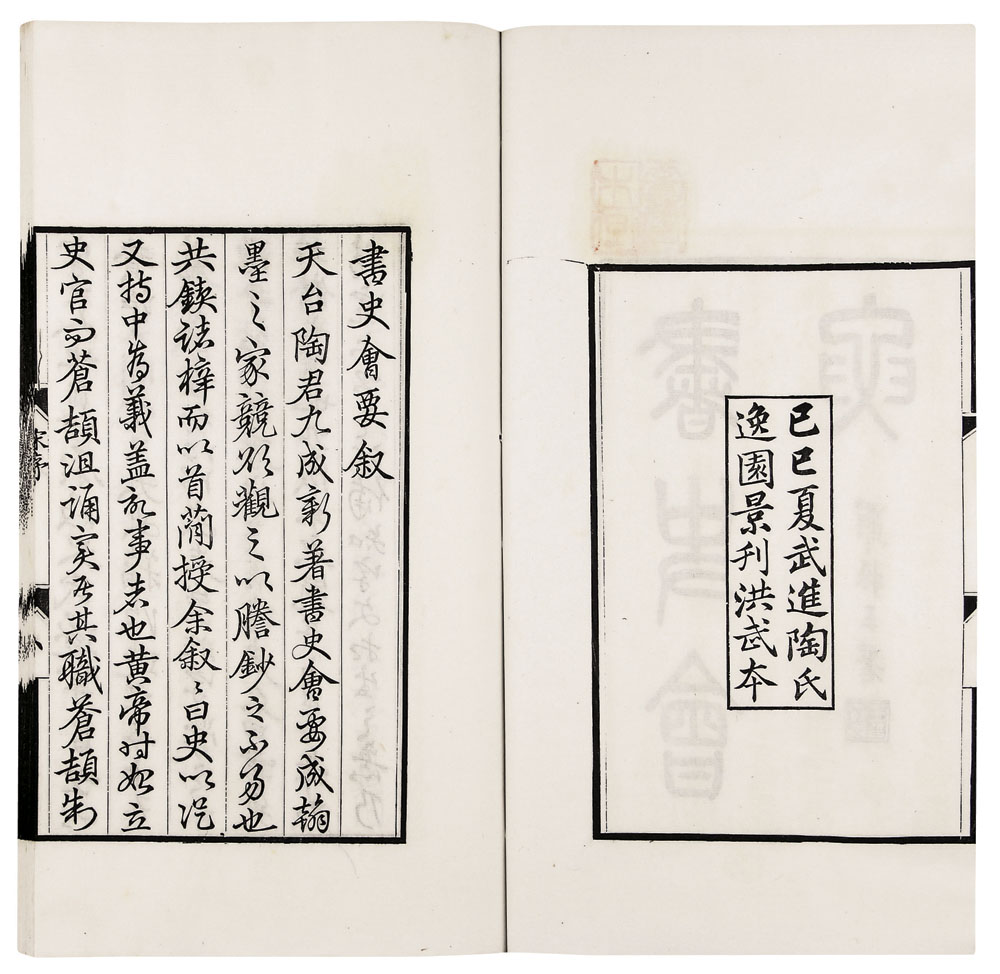 己巳夏武進陶氏
逸園景刊洪武本
書史會要叙
天台陶君九成新著書史會要成翰
墨之家競欲觀之以謄鈔之不易也
共鋟諸梓而以首簡授余叙〻曰史以從
又持中為義蓋記事者也黃帝時始立
史官而蒼頡沮誦實居其職蒼頡制
宋序